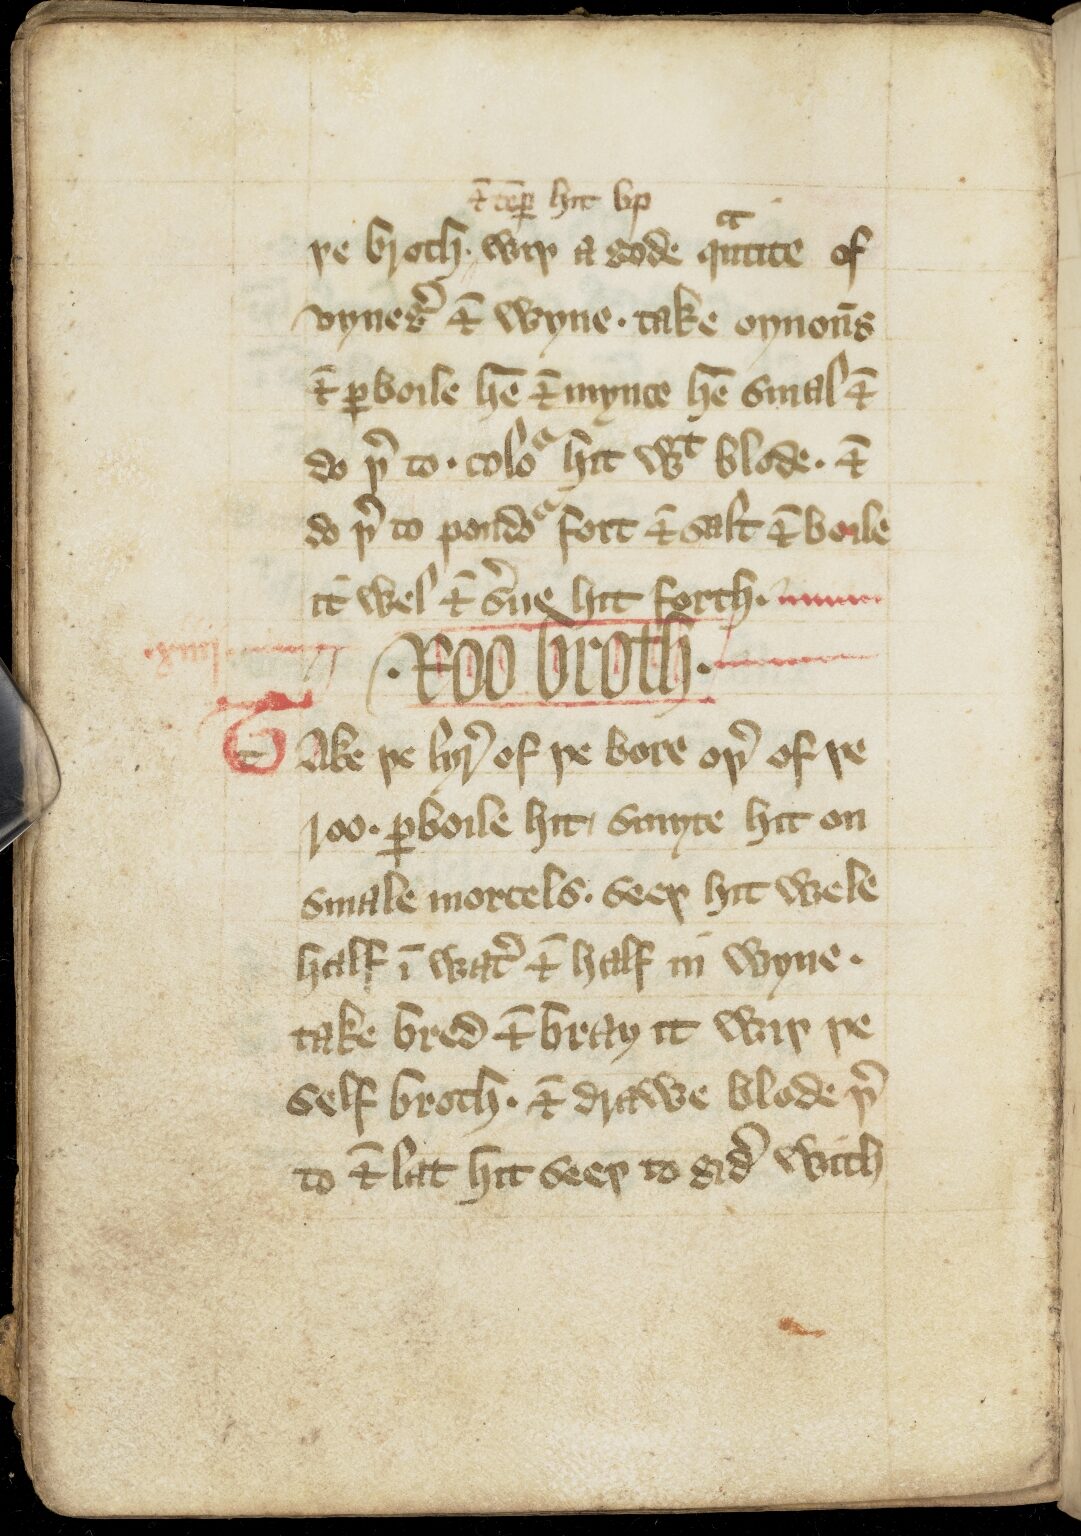 ⁊ temꝑ hit vp
þe broth. wiþ a gode quᵃtite of
vyneg̉ ⁊ wyne. take oynoūs
⁊ ꝑboile hē ⁊ mynce hē smal ⁊
do þ̉ to. coloᵒ hit wᵗ blode. ⁊
do þ̉ to poudoᵒ fort ⁊ salt ⁊ boile
it wel ⁊ s̉ue hit forth.
.Roo broth.
TAke þe lyr̉ of þe bore oþ̉ of þe
roo. ꝑboile hit / smyte hit on
smale morcels. seeþ hit wele
half ī wat̉ ⁊ half in wyne.
take bred ⁊ bray it wiþ þe
self broth. ⁊ drawe blode þ̉
to ⁊ lat hit seeþ to gid̉ with